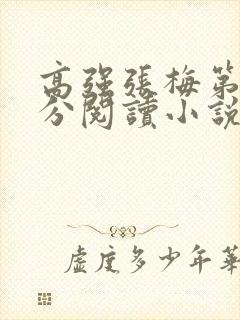 高强張梅第
分閱讀小說
虛度多少年華